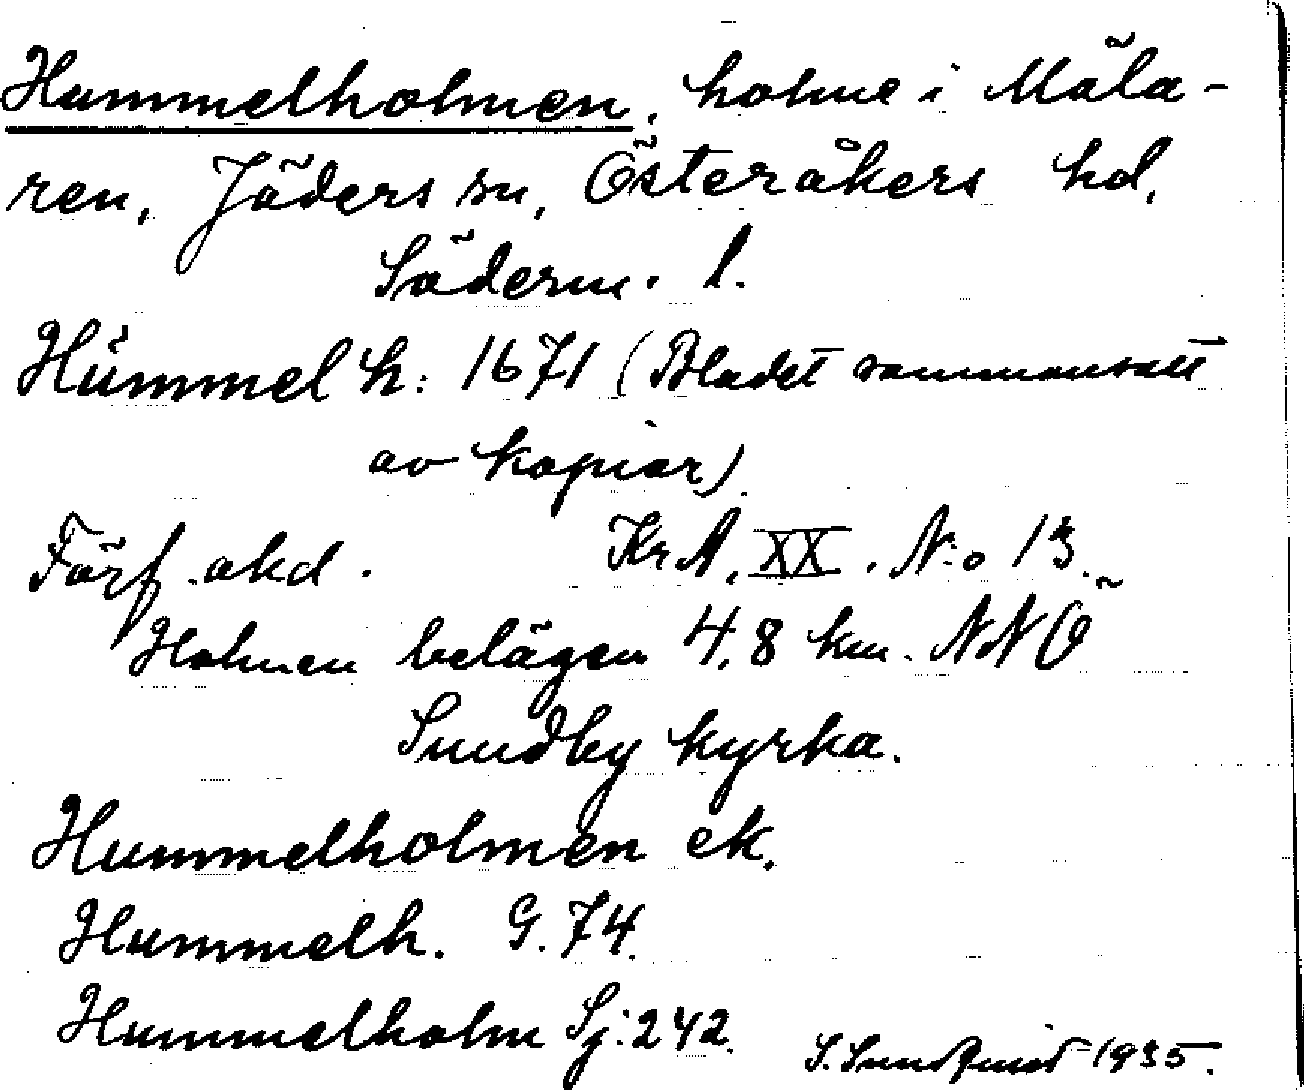 Hummelholmen, holme i Mäla-
ren, Jäders sn, Österåkers hd,
Söderm. l.
Hümmel h: 1671 (Bladet sammansatt
av kopior)
Förf. okd. KrA, XX. N:o 13.
Holmen belägen 4,8 km. NNÖ
Sundby kyrka.
Hummelholmen ek.
Hummelh. G. 74.
Hummelholm Sj: 242.
S. Sundquist 1935.